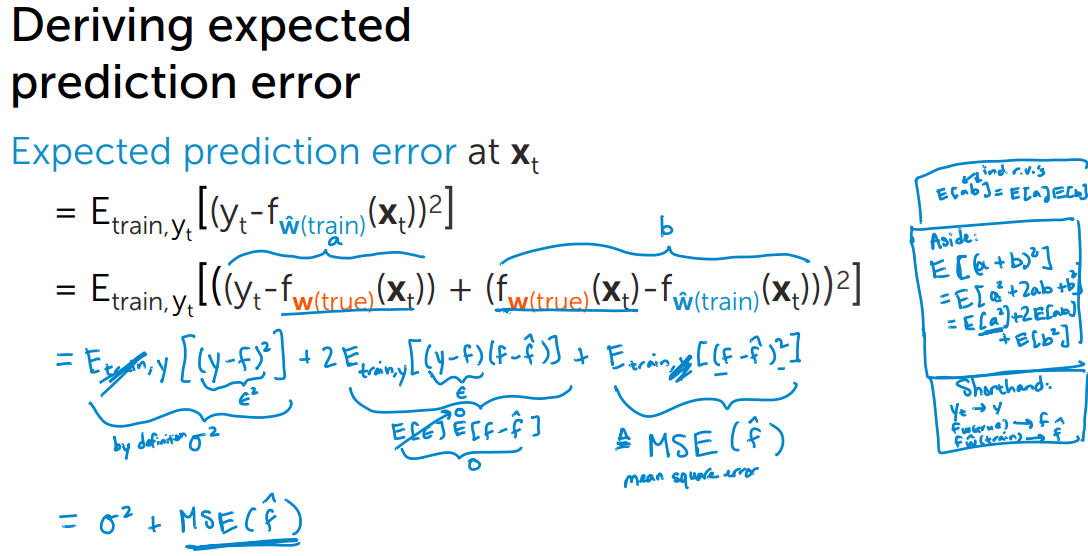 Deriving expected
prediction error
Expected prediction error at xₜ
= E_train,yₜ[(yₜ-f_ŵ(train)(xₜ))²]
a
b
= E_train,yₜ[((yₜ-f_w(true)(xₜ)) + (f_w(true)(xₜ)-f_ŵ(train)(xₜ)))²]
= E_train,y [(y-f)²] + 2 E_train,y[(y-f)(f-f̂)] + E_train,y[(f-f̂)²]
ε²
ε
by definition σ²
E[ε] E[f-f̂]
0
0
≜ MSE (f̂)
mean square error
= σ² + MSE(f̂)
ind r.v.'s
E[ab] = E[a]E[b]
Aside:
E[(a+b)²]
= E[a²+2ab+b²]
= E[a²]+2E[ab]
+E[b²]
Shorthand:
yₜ → y
f_w(true) → f
f_ŵ(train) → f̂